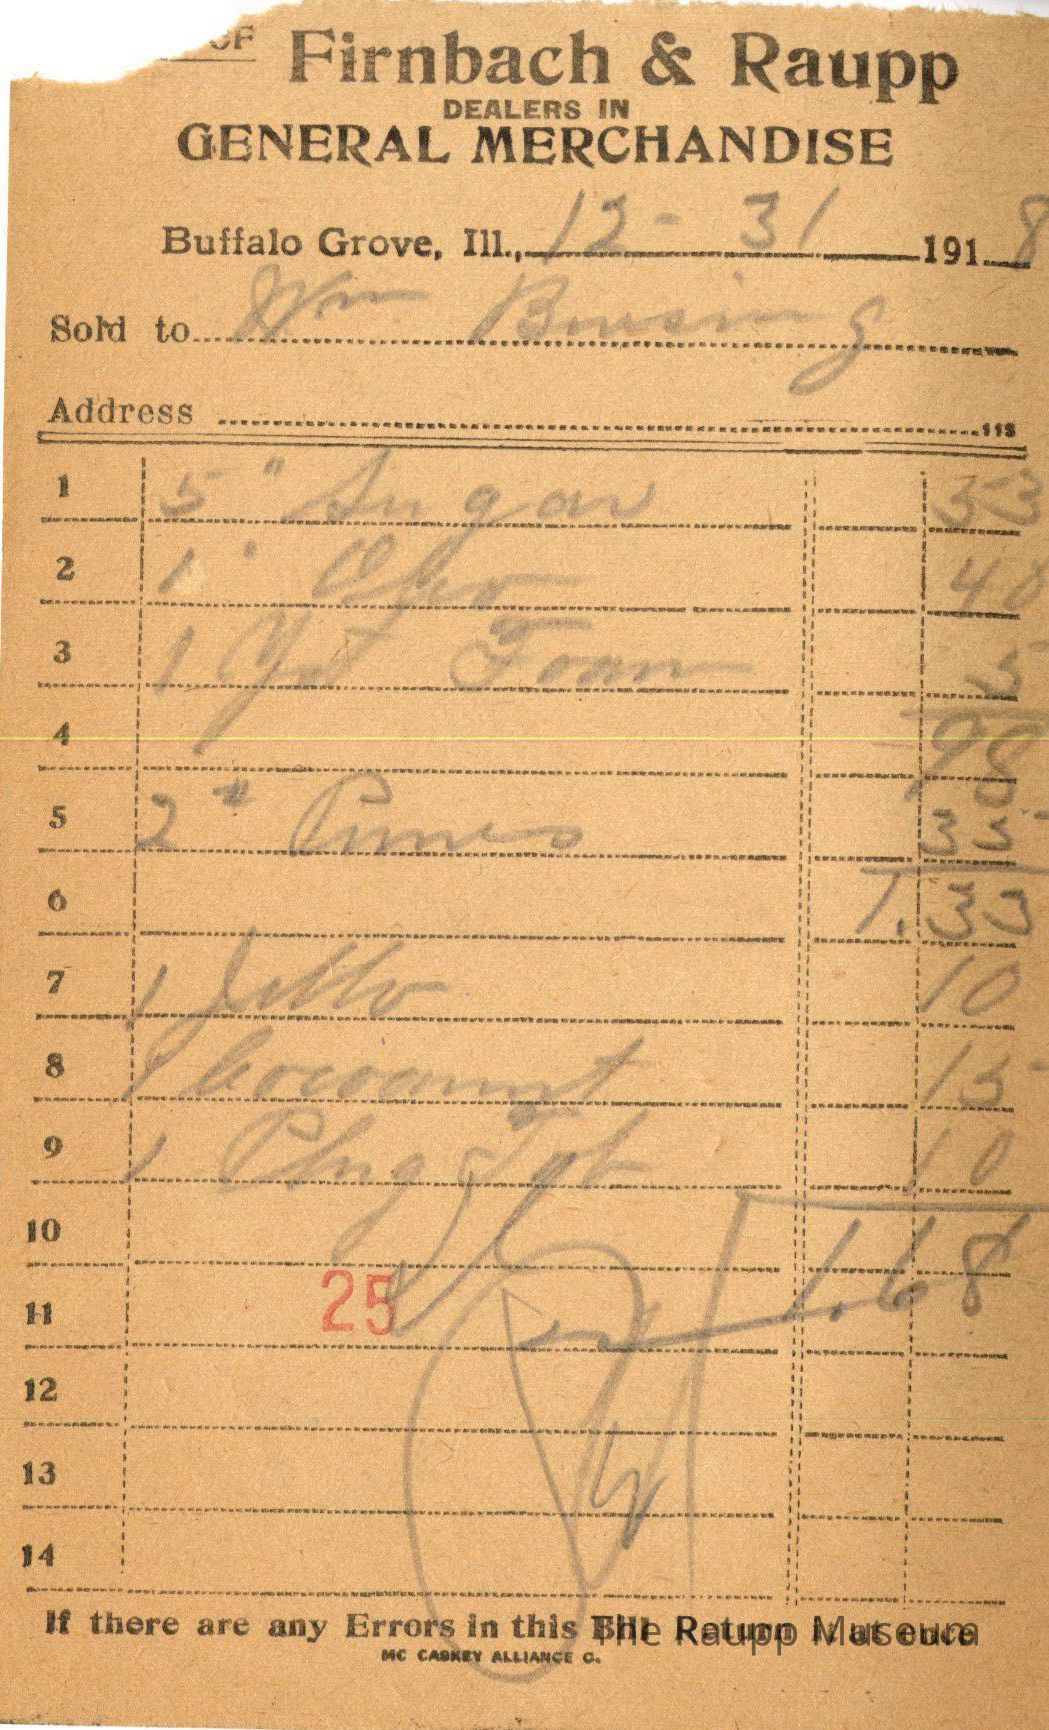 OF
Firnbach & Raupp
DEALERS IN
GENERAL MERCHANDISE
Buffalo Grove, Ill., 12 - 31 191 8
Sold to Wm Busing
Address
113
1 5 " Sugar 53
2 1 " Oleo 40
3 1 Yst Foam 5
4 98
5 2 " Prunes 35
6 1.33
7 1 Jello 10
8 1 Cocoanut 15
9 1 Plug Tob 10
10 1.68
11 25
12
13
14
If there are any Errors in this Bill Return it at once
The Raupp Museum
MC CASKEY ALLIANCE O.